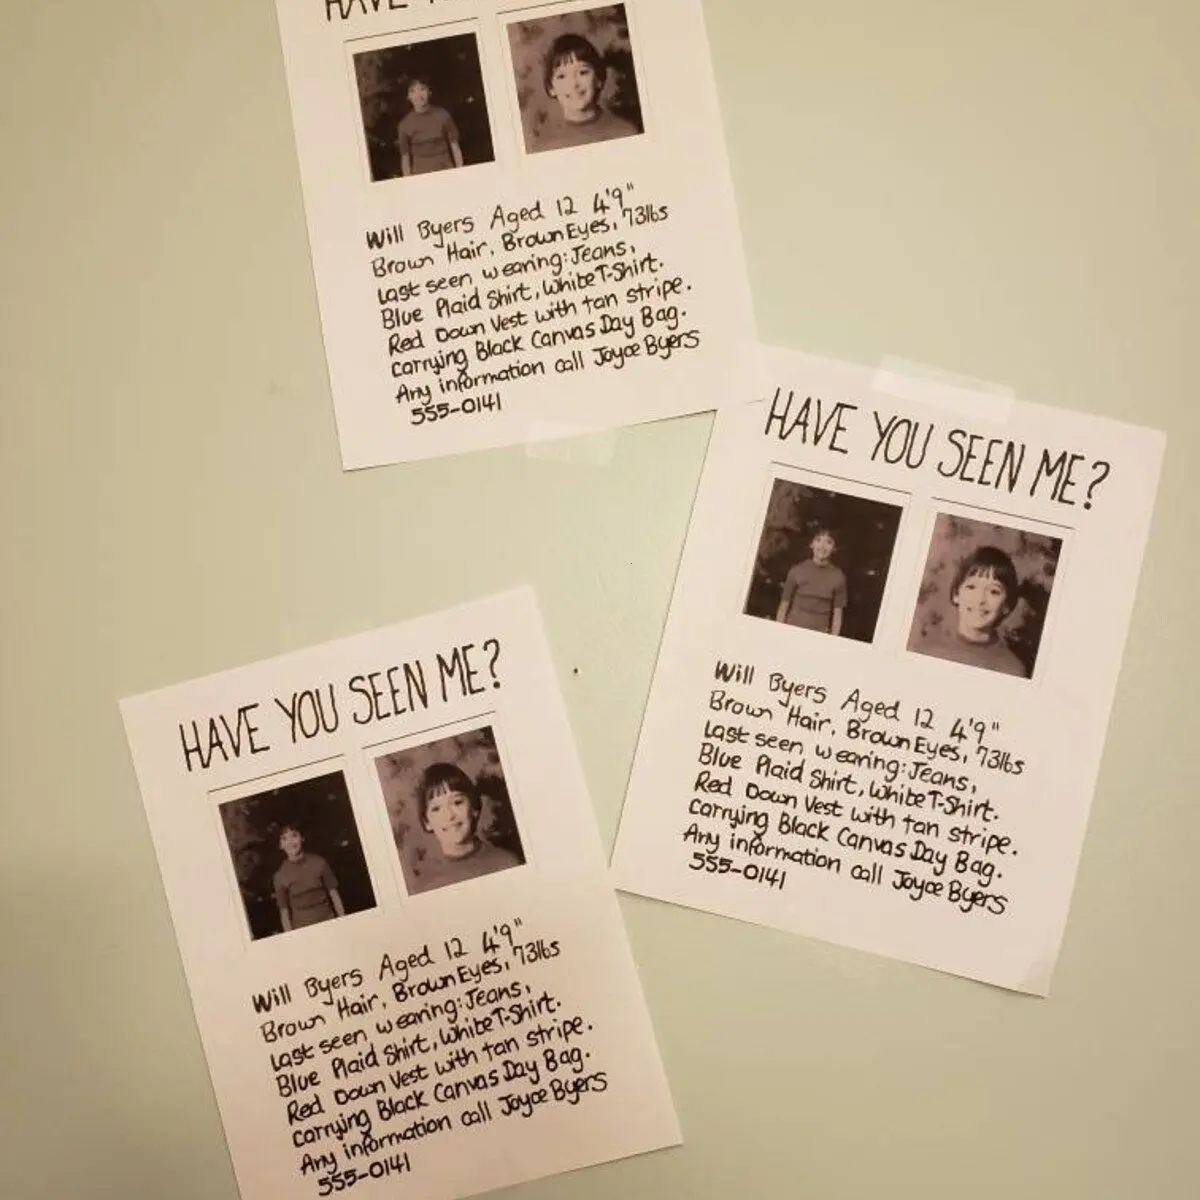 HAVE
Will Byers Aged 12 4'9"
Brown Hair, Brown Eyes, 73lbs
Last seen wearing: Jeans,
Blue Plaid Shirt, White T-Shirt.
Red Down Vest with tan stripe.
carrying Black Canvas Day Bag.
Any information call Joyce Byers
555-0141
HAVE YOU SEEN ME?
Will Byers Aged 12 4'9"
Brown Hair, Brown Eyes, 73lbs
Last seen wearing: Jeans,
Blue Plaid Shirt, White T-Shirt.
Red Down Vest with tan stripe.
carrying Black Canvas Day Bag.
Any information call Joyce Byers
555-0141
HAVE YOU SEEN ME?
Will Byers Aged 12 4'9"
Brown Hair, Brown Eyes, 73lbs
Last seen wearing: Jeans,
Blue Plaid Shirt, White T-Shirt.
Red Down Vest with tan stripe.
carrying Black Canvas Day Bag.
Any information call Joyce Byers
555-0141